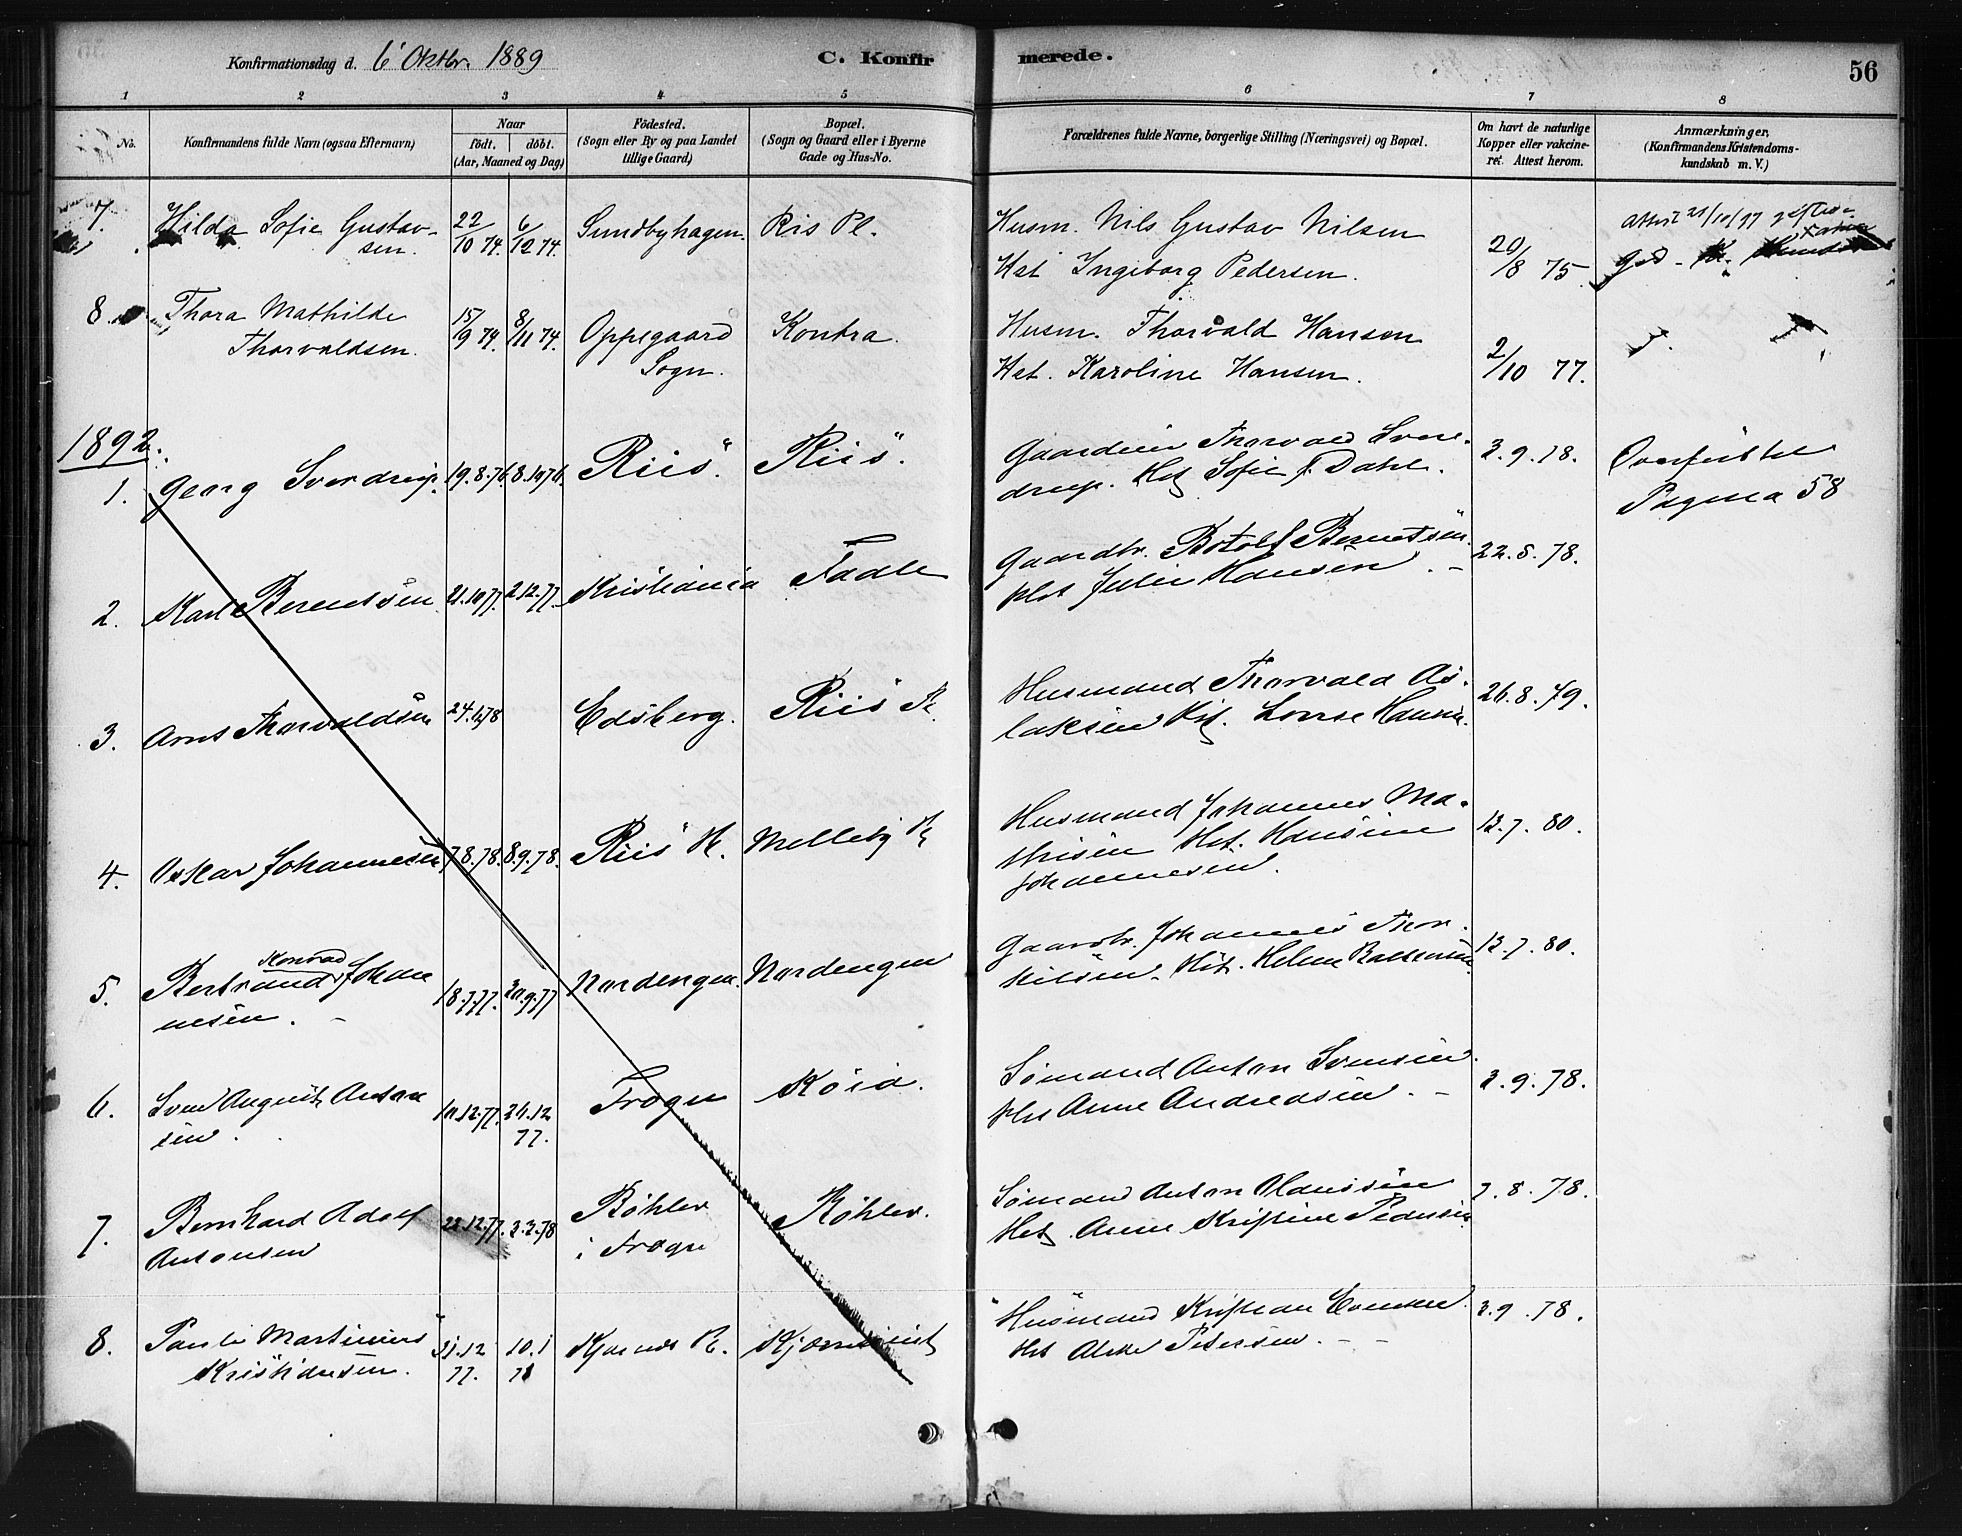 Konfirmationsdag d. 6' Oktbr. 1889
C. Konfirmerede.
56
1 2 3 4 5 6 7 8
No.
Konfirmandens fulde Navn (ogsaa Efternavn)
Naar
født. døbt.
(Aar, Maaned og Dag)
Fødested.
(Sogn eller By og paa Landet
tillige Gaard)
Bopæl.
(Sogn og Gaard eller i Byerne
Gade og Hus-No.
Forældrenes fulde Navne, borgerlige Stilling (Næringsvei) og Bopæl.
Om havt de naturlige
Kopper eller vakcine-
ret. Attest herom.
Anmærkninger,
(Konfirmandens Kristendoms-
kundskab m. V.)
7. Hilda Sofie Gustav-
sen. 22/10 74. 6/12 74. Sundbyhagen. Ris Pl. Husm. Nils Gustav Nilsen
Hst. Ingeborg Pedersen. 20/8 75. Attest 21/10/97
God -
8. Thora Mathilde
Thorvaldsen. 15/9 74. 8/11 74. Oppegaard
Sogn. Kontra. Husm. Thorvald Hansen
Hst. Karoline Hansen. 2/10 77.
1892.
1. Georg Sverdrup. 19.8.76. 8.10.76. Riis. Riis. Gaardeier Thorvald Sver-
drup. Hst Sofie f. Dahl. 3.9.78. Overført til
Pagina 58
2. Karl Berentsen 21.10.77. 2.12.77. Kristiania Taale Gaardbr. Botolf Berentsen.
Hst Julie Hansen. 22.8.78.
3. Arne Thorvaldsen 24. 78 Edsberg. Riis Pl. Husmand Thorvald As-
laksen Hst. Lovise Hansen. 26.8.79.
4. Oskar Johannesen 7.8.78. 8.9.78. Riis Pl. Melleby Pl. Husmand Johannes Ma-
thisen Hst. Hansine
Johannesen. 13.7.80.
5. Bertrand Konrad Johan
nesen. 18.7.77. 30.9.77 Nordengen. Nordengen Gaardbr. Johannes Thor-
kilsen. Hst. Helene 13.7.80.
6. Sven August Anton
sen. 10.12.77. 26.12
77. Frogn Køia. Sømand Anton Svensen.
Hst Anne Andreasen. 3.9.78.
7. Bernhard Adolf
Antonsen 22.12.77. 3.2.78 Røhler
i Frogn Røhler. Sømand Anton Hanssen
Hst. Anne Kristine Pedersen 7.8.78.
8. Paul Martinius
Kristiansen. 31.12
77. 10.1
78 Kjærnes Pl. Husmand Kristian Evensen.
Hst Petersen. 3.9.78.